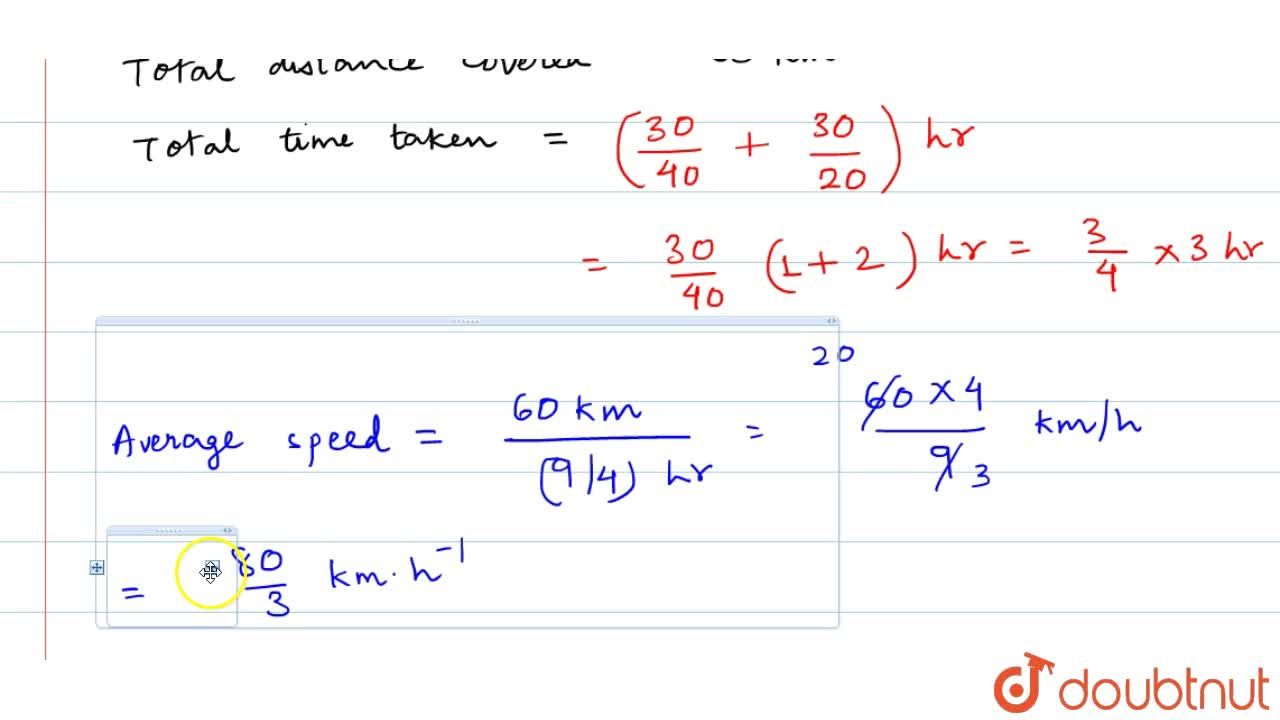 Total distance covered
Total time taken = (30/40 + 30/20) hr
= 30/40 (1+2) hr = 3/4 × 3 hr
Average speed = 60 km / (9/4) hr = 20 60 × 4 / 9 3 km/h
= 80/3 km·h⁻¹
doubtnut